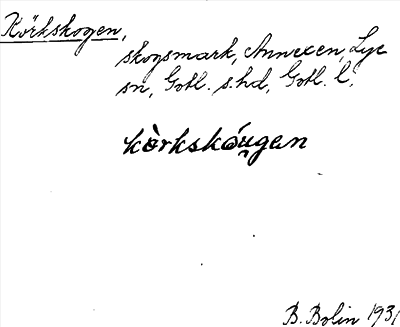 Körkskogen,
skogsmark, Annexen, Lye
sn, Gotl. s. hd, Gotl. l.
kòrkskóu̯gen
B. Bolin 1931